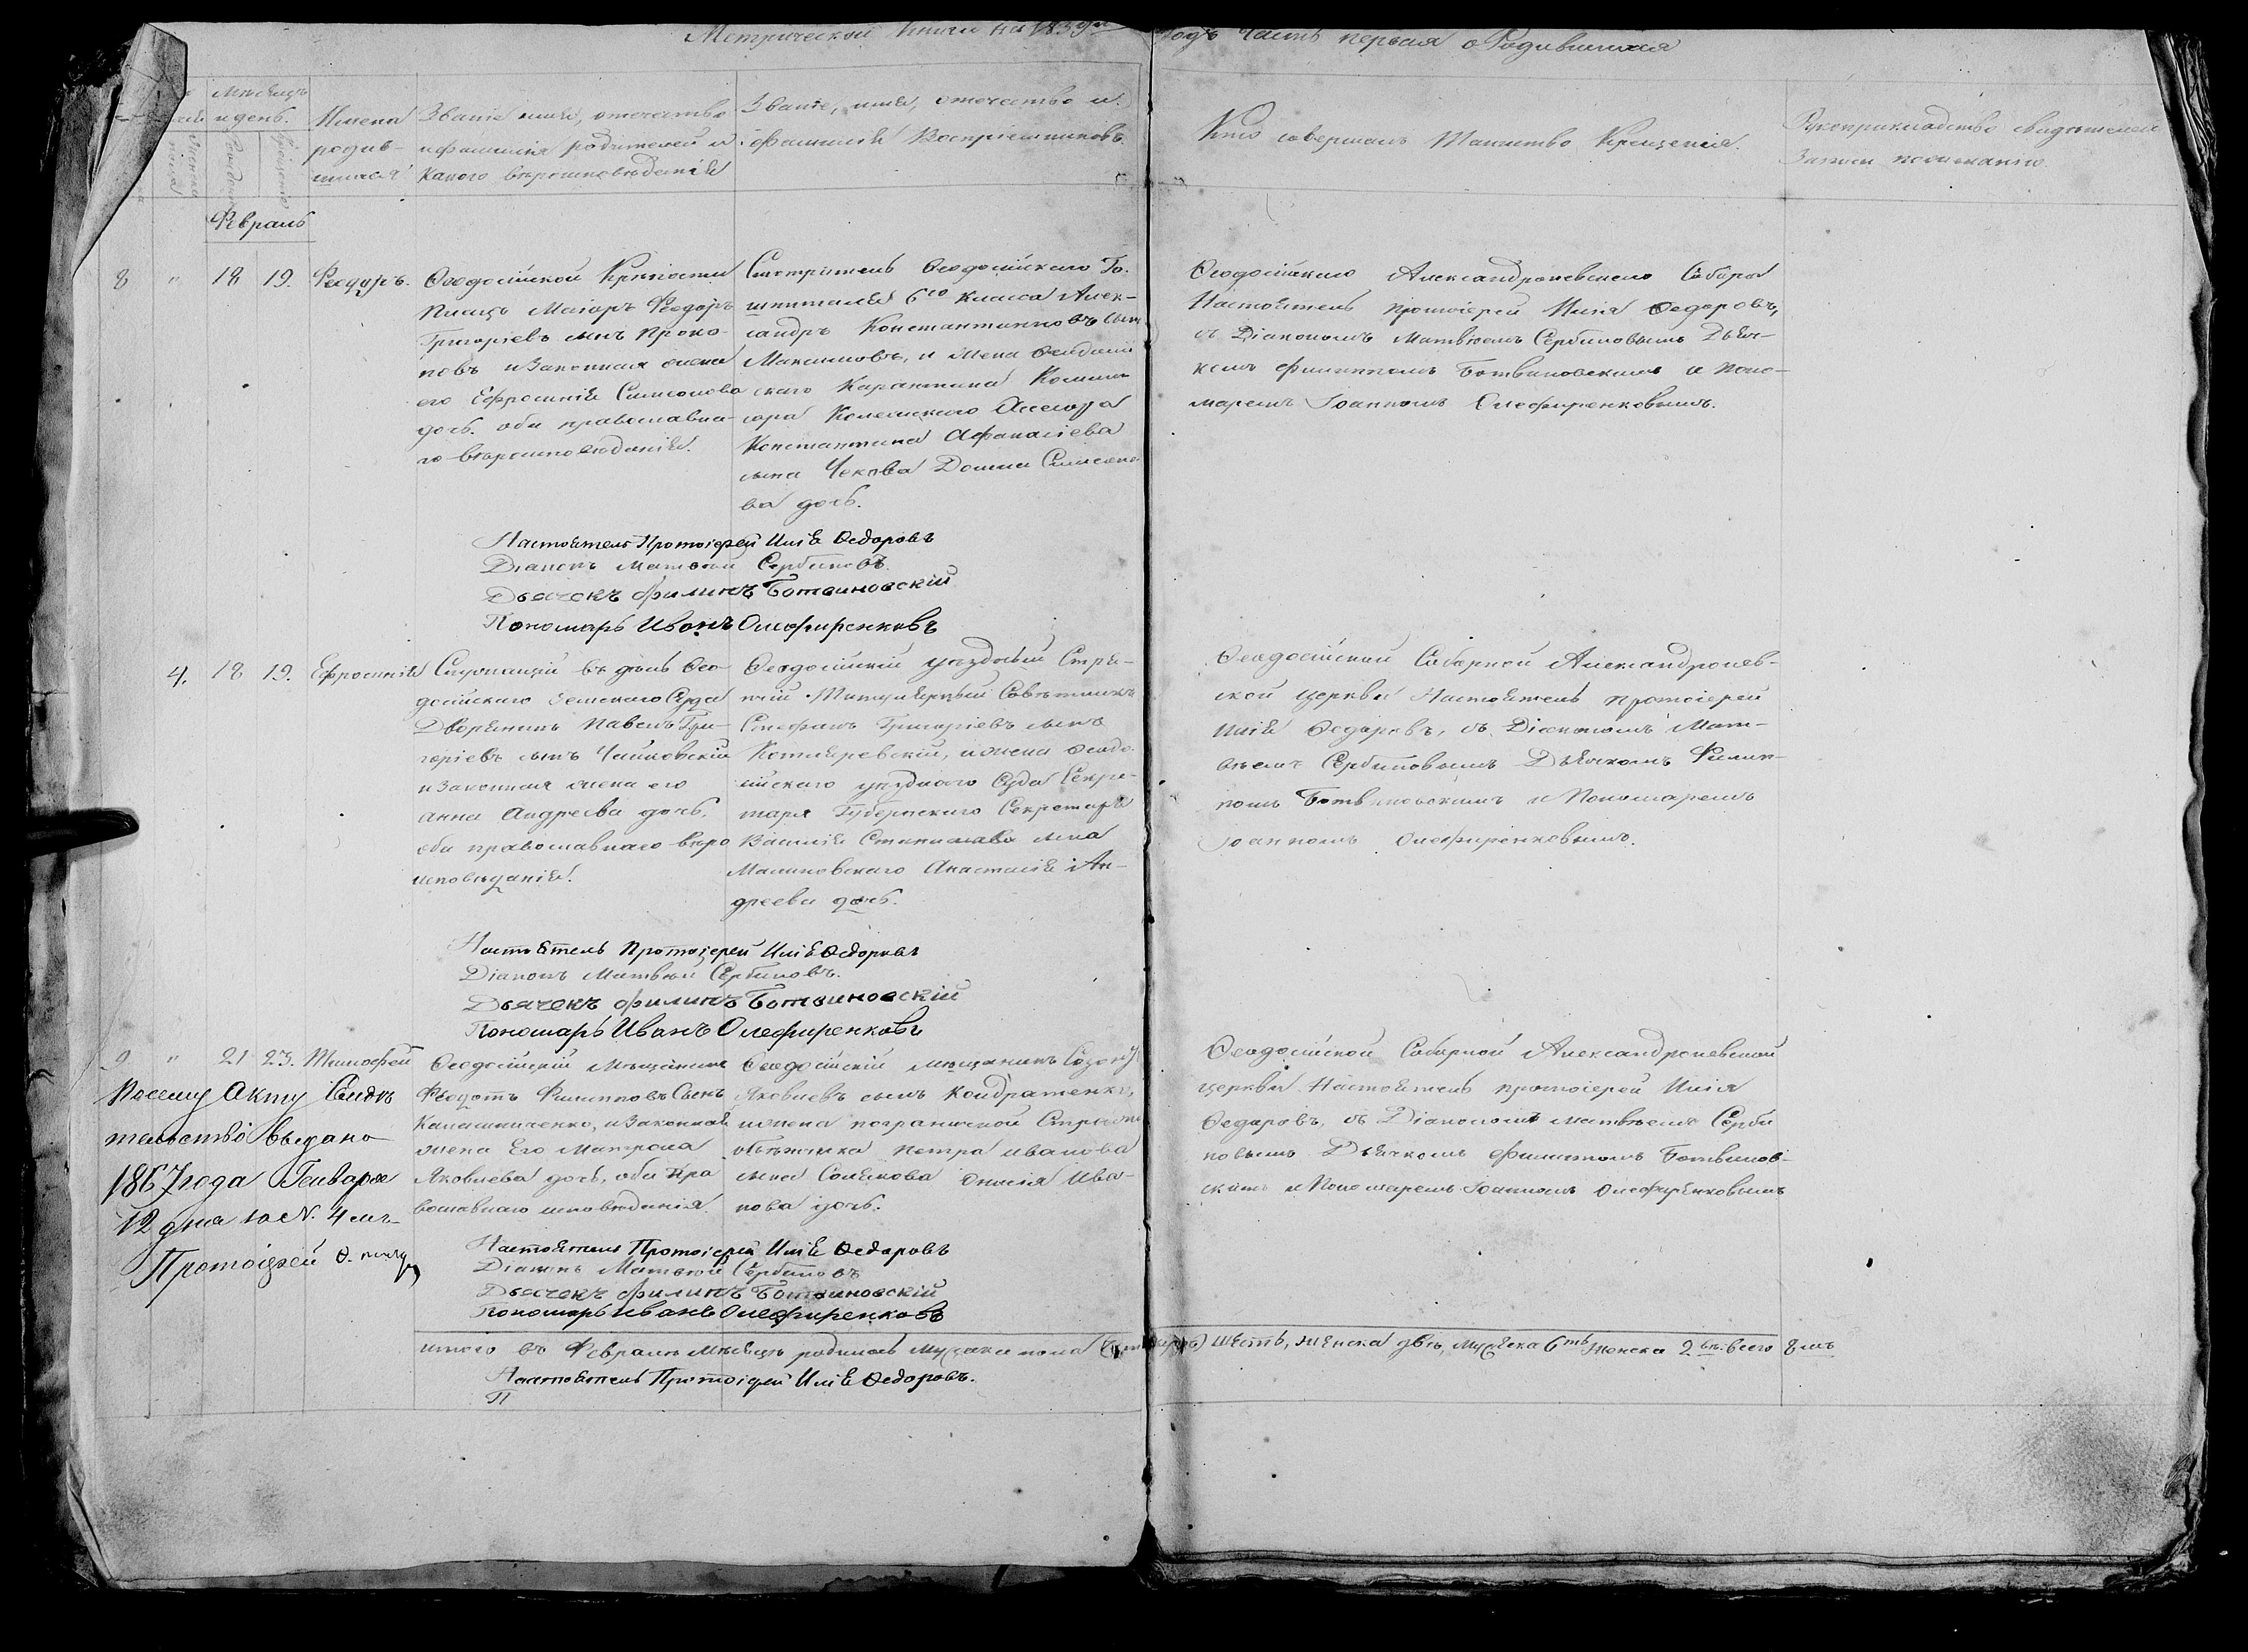 Метрической Книги на 1839й годъ Часть первая о Родившихся
Мѣсяцъ
и день.
Имена
родив-
шихся
Званіе имя, отечество
и фамилія родителей и
какого вѣроисповѣданія
Званіе, имя, отечество и
фамилія Воспріемниковъ.
Кто совершалъ Таинство Крещенія.
Рукоприкладство свидѣтелей
Записи по желанію.
Февраль
8 " 18 19. Феодоръ.
Ѳеодосійской Крѣпости
Плацъ Маіоръ Феодоръ
Григоріевъ сынъ Проко-
повъ и Законная жена
его Ефросинія Симеонова
дочь. оба православна-
го вѣроисповѣданія.
Смотритель Ѳеодосійскаго Го-
шпиталя 6го класса Алек-
сандръ Константиновъ сынъ
Максимовъ, и жена Ѳеодосій
скаго Карантина Комми
сара Колежскаго Ассесора
Константина Афанасіева
сына Чекова Домна Симеоно
ва дочь.
Ѳеодосійскаго Александроневскаго Собора
Настоятель протоіерей Илія Ѳедоровъ,
съ Діакономъ Матвѣемъ Сербиновымъ Дьяч-
комъ Филиппомъ Ботвиновскимъ и Поно-
маремъ Іоанномъ Олефиренковымъ.
Настоятель Протоіерей Илія Ѳедоровъ
Діаконъ Матвѣй Сербиновъ.
Дьячекъ Филипъ Ботвиновскій
Пономарь Иванъ Олефиренковъ
4. 18 19. Ефросинія
Служащій въ дѣль Ѳео-
досійскаго Земскаго Суда
Дворянинъ Павелъ Гри-
горіевъ сынъ Чайковскій
и Законная жена его
Анна Андреева дочь,
оба православнаго вѣро
исповѣданія.
Ѳеодосійскій уѣздный Стря-
пчій Титулярный Совѣтникъ
Стефанъ Григоріевъ сынъ
Котляревскій, и жена Ѳеодо
сійскаго уѣзднаго Суда Секре-
таря Губернскаго Секретаря
Василія Станиславова сына
Малиновскаго Анастасія Ан-
дреева дочь.
Ѳеодосійской Соборной Александронев-
ской церкви Настоятель протоіерей
Илія Ѳедоровъ, съ Діакономъ Мат-
вѣемъ Сербиновымъ Дьячкомъ Филип-
помъ Ботвиновскимъ и Пономаремъ
Іоанномъ Олефиренковымъ.
Настоятель Протоіерей Илія Ѳедоровъ
Діаконъ Матвѣй Сербиновъ.
Дьячекъ Филипъ Ботвиновскій
Пономарь Иванъ Олефиренковъ
9 " 21 23. Тимофей
По сему Акту Свидѣ
тельство выдано
1867 года Генваря
12 дня за N. 4мъ
Протоіерей
Ѳеодосійскій Мѣщанинъ
Феодотъ Филипповъ Сынъ
Калашниченко, и Законная
жена Его Матрона
Яковлева дочь, оба пра
вославнаго исповѣданія.
Ѳеодосійскій мѣщанинъ Созонъ
Яковлевъ сынъ Кондратенко,
и жена пограничной Стражи
объѣзчика Петра Иванова
сына Солякова Ива-
нова дочь.
Ѳеодосійской Соборной Александроневской
церкви Настоятель протоіерей Илія
Ѳедоровъ, съ Діакономъ Матвѣемъ Серби
новымъ Дьячкомъ Филиппомъ Ботвинов-
скимъ и Пономаремъ Іоанномъ Олефиренковымъ
Настоятель Протоіерей Илія Ѳедоровъ
Діаконъ Матвѣй Сербиновъ
Дьячекъ Филипъ Ботвиновскій
Пономарь Иванъ Олефиренковъ
итого въ Февралѣ Мѣсяцѣ родилось мужска пола шесть, женска двѣ, мужска 6ть женска 2вѣ. всего 8мь
Настоятель Протоіерей Илія Ѳедоровъ.
П